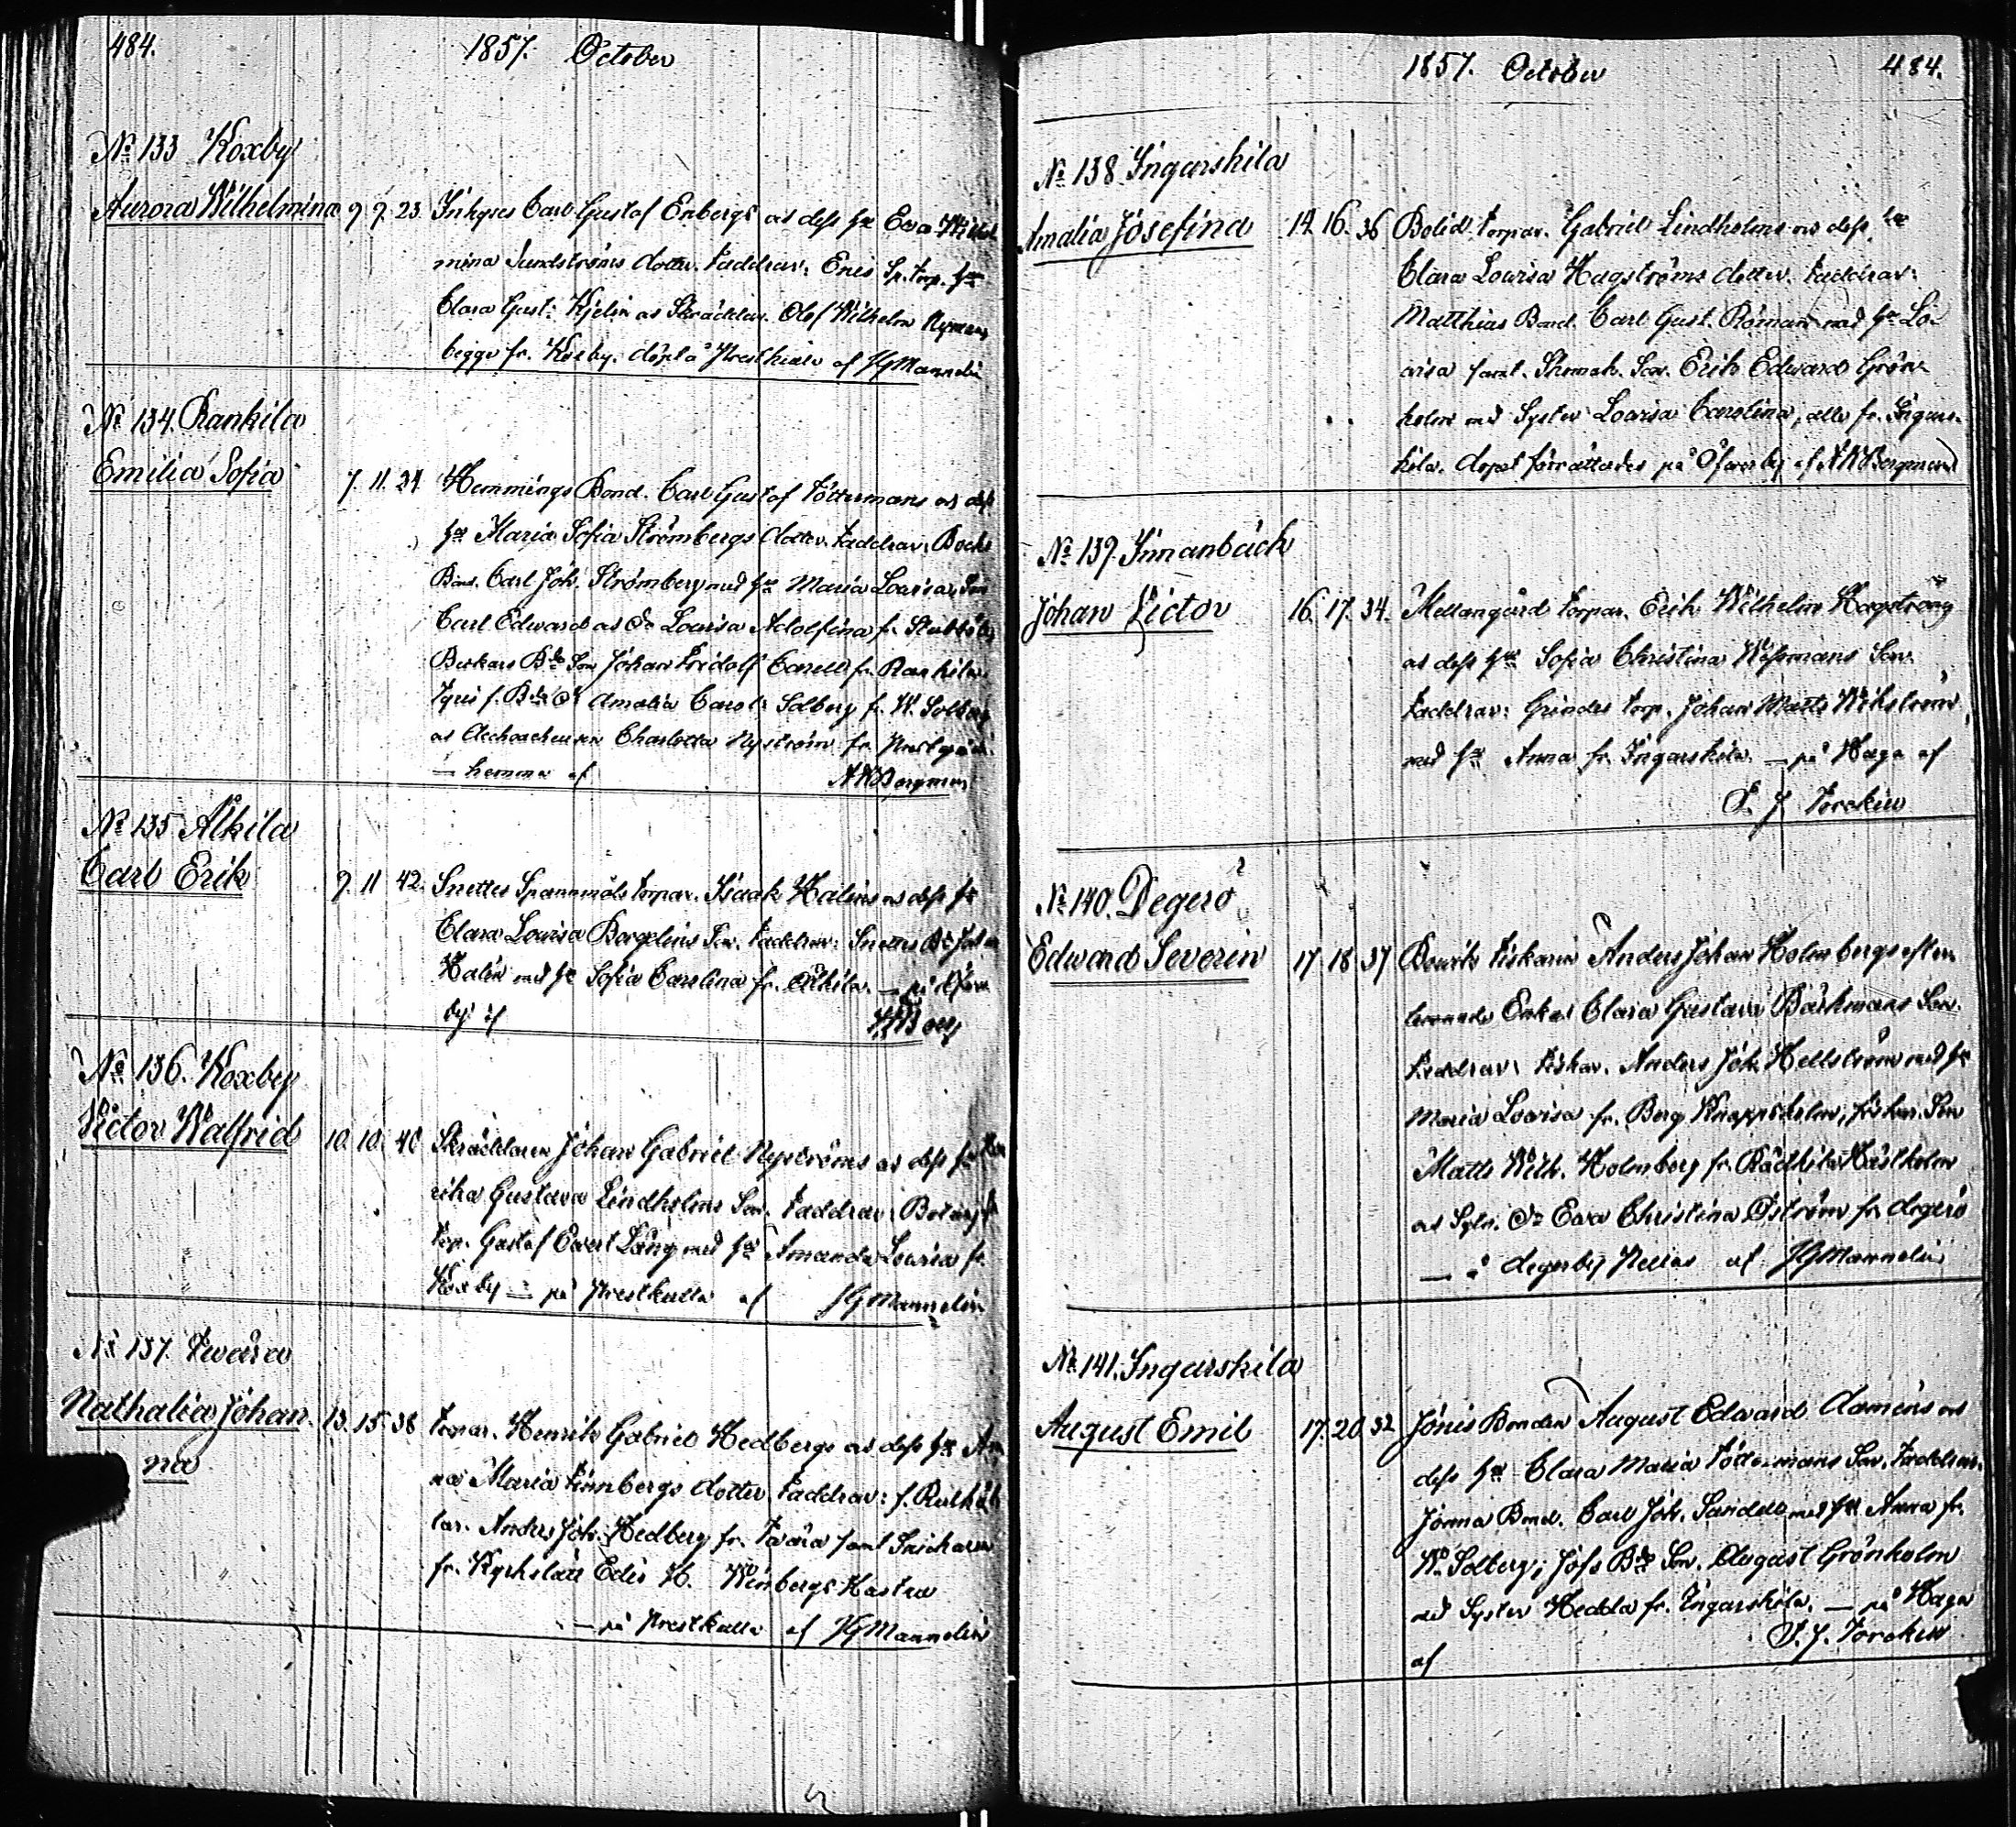 484. 1857. October
No 133 Koxby
Aurora Wilhelmina 9 9. 23. Inhyses Carl Gustaf Enbergs as dess hu Eva Wilhel
mina Sundströms dotter. Faddrar: Eners Sp. torp. hu
Clara Gust: Kjelin as Skräddar. Olof Wilhelm Nyman,
begge fr. Koxby. döpt å af JGMannelin
No 134. Rankila
Emilia Sofia 7. 11. 24 Hemmings Bond. Carl Gustaf Töttermans as dess
hu Maria Sofia Strömbergs dotter. Faddrar: Bocks
Bond. Carl Joh. Strömberg med hu Maria Lovisa, Son
Carl Edward as Do Lovisa Adolfina fr.
Bde Son Johan Fridolf fr. Rankila.
f. Bde Dr Amalia Carol: Solberg fr. W. Solberg
as Charlotta Nyström fr.
— hemma af AWBergman
No 135 Alkila
Carl Erik 9. 11 42. Snettes torpar. Isaak Halins as dess hu
Clara Lovisa Borgelius Son. Faddrar: Snettes Bd Johan
Halin med hu Sofia Carolina fr. Alkila. — på Öfver
by af
No 136. Koxby
Victor Walfrid 10. 10. 40 Skräddaren Johan Gabriel Nyströms as dess hu
rika Gustava Lindholms Son. Faddrar:
torp. Gustaf Evert Lång med hu Amanda Lovisa fr.
Koxby — på Prestkulla af JGMannelin
No 137. Twära
Nathalia Johan- 13. 15. 38 torpar. Henrik Gabriel Hedbergs as dess hu An
na na Maria Finnbergs dotter. Faddrar: f.
lar. Anders Joh. Hedberg fr. Twära samt Snickaren
fr. Kyrkslätt Edis H. Winbergs Hustru
— på Prestkulla af JGMannelin
1857. October 484.
No 138. Ingarskila
Amalia Josefina 14. 16. 36 torpar. Gabriel Lindholms as dess hu
Clara Lovisa Hagströms dotter. Faddrar:
Matthias Bond. Carl Gust. Röman med hu Lo-
visa samt Skomak. Son. Erik Edward Grön-
holm med Syster Lovisa Carolina, alla fr. Ingars-
kila. dopet förrättades på Öfverby af AWBergman
No 139. Innanbäck
Johan Victor 16. 17. 34. Mellangård torpar. Erik Wilhelm Hagströms
as dess hu Sofia Christina Wessmans Son.
Faddrar: Grindes torp. Johan Matts Wikström
med hu Anna fr. Ingarskila. — på Haga af
F. J. Forckell
No 140. Degerö
Edward Severin 17. 18. 37 Fiskarn Anders Johan Holmbergs efter
lemnade Enkas Clara Gustava Backmans Son.
Faddrar: Fiskar. Anders Joh. Hellström med hu
Maria Lovisa fr. Berg Knappsholm, fiskar. Son
Matts Wilh. Holmberg fr. Rädkila Hästholm
as Sytn. Dr Eva Christina Öström fr. degerö
— å degerby Nellas af JGMannelin
No 141. Ingarskila
August Emil 17. 20. 32 Jönis Bonden August Edward as
dess hu Clara Maria Töttermans Son. Faddrar:
Jönna Bond. Carl Joh. Sandell med hu Anna fr.
W. Solberg; Jofs Bde Son. August Grönholm
med Syster Hedda fr. Ingarskila. — på Haga
af F. J. Forckell